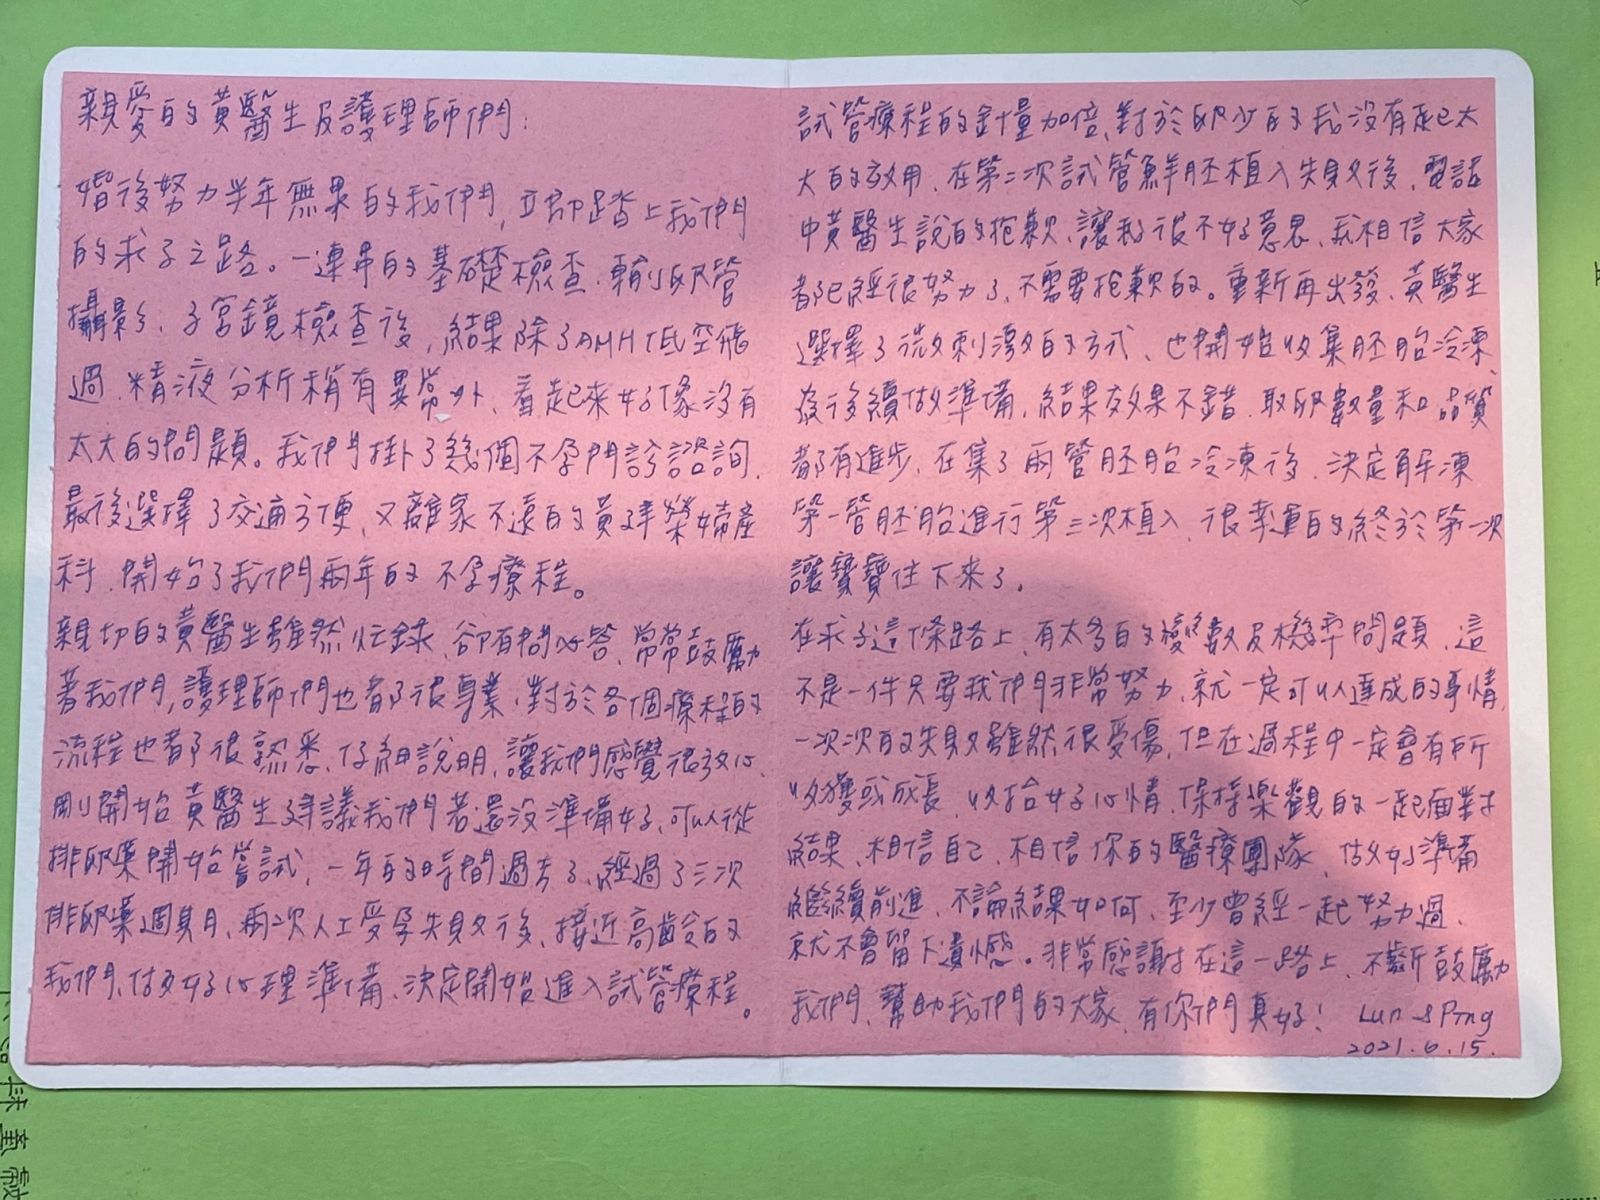 親愛的黃醫生及護理師們:
婚後努力半年無果的我們,立即踏上我們
的求子之路。一連串的基礎檢查、輸卵管
攝影、子宮鏡檢查後,結果除了AMH低空飛
過、精液分析稍有異常外、看起來好像沒有
太大的問題。我們掛了幾個不孕門診諮詢、
最後選擇了交通方便、又離家不遠的黃建榮婦產
科、開始了我們兩年的不孕療程。
親切的黃醫生雖然忙錄、卻有問必答、常常鼓勵
著我們,護理師們也都很專業、對於各個療程的
流程也都很熟悉、仔細說明,讓我們感覺很放心、
剛開始黃醫生建議我們若還沒準備好、可以從
排卵藥開始嘗試,一年的時間過去了、經過了三次
排卵藥週期、兩次人工受孕失敗後、接近高齡的
我們、做好心理準備、決定開始進入試管療程。
試管療程的針量加倍、對於卵少的我沒有起太
大的效用、在第二次試管鮮胚植入失敗後、電話
中黃醫生說的抱歉、讓我很不好意思、我相信大家
都已經很努力了、不需要抱歉的。重新再出發、黃醫生
選擇了微刺激的方式、也開始收集胚胎冷凍、
為後續做準備,結果效果不錯、取卵數量和品質
都有進步、在集了兩管胚胎冷凍後、決定解凍
第一管胚胎進行第三次植入、很幸運的終於第一次
讓寶寶住下來了。
在求子這條路上、有太多的變數及機率問題、這
不是一件只要我們非常努力、就一定可以達成的事情,
一次次的失敗雖然很受傷、但在過程中一定會有所
收獲或成長、收拾好心情、保持樂觀的一起面對
結果、相信自己、相信你的醫療團隊、做好準備
繼續前進、不論結果如何、至少曾經一起努力過、
就不會留下遺憾。非常感謝在這一路上、不斷鼓勵
我們、幫助我們的大家、有你們真好! Lun & Ping
2021.6.15.